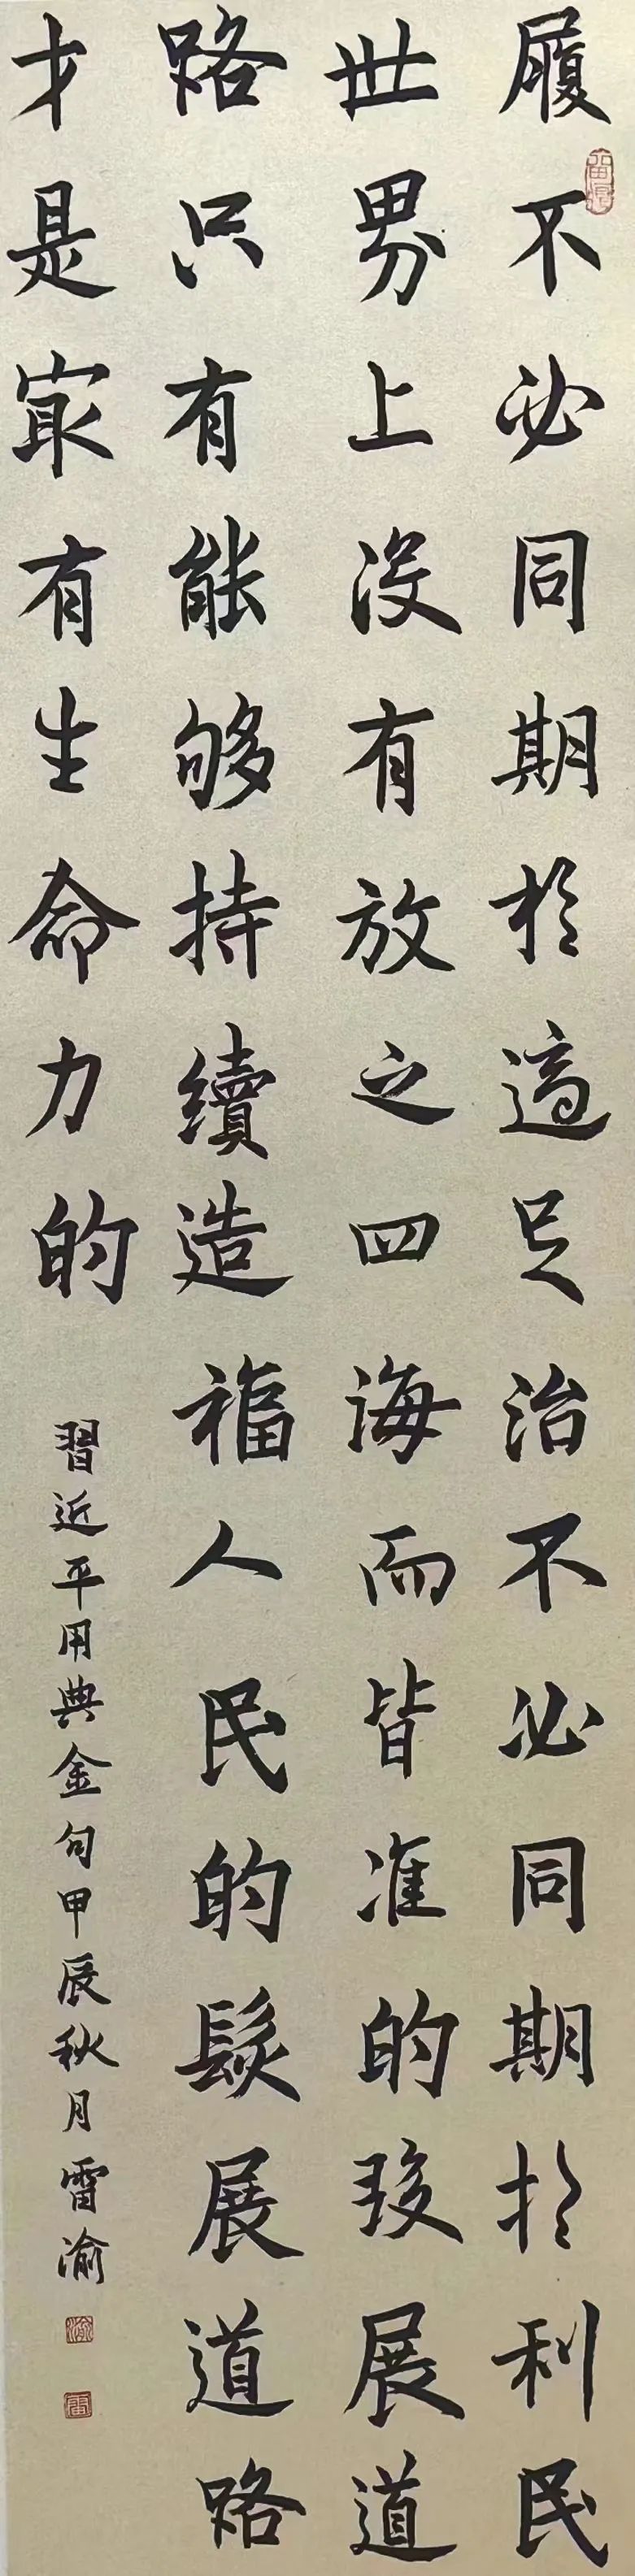 履不必同期於適足治不必同期於利民
世界上沒有放之四海而皆准的發展道
路只有能够持續造福人民的髮展道路
才是冣有生命力的
習近平用典金句甲辰秋月雷渝
渝
雷